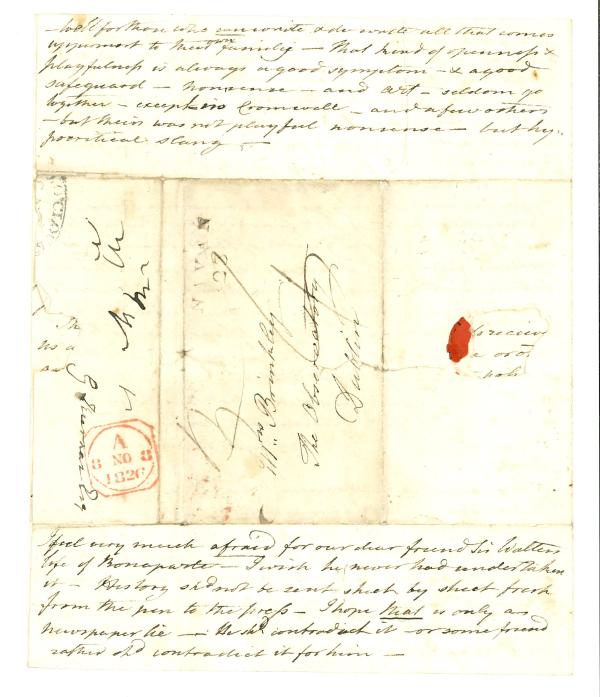 Well for those who can write & do write all that comes
uppermost to their own family — that kind of openness &
playfulness is always a good symptom — & a good
safeguard — nonsense — and art — seldom go
together — except in Cromwell — and a few others
— but theirs was not playful nonsense — but hy-
pocritical slang —
NAVAN
28
Mrs Brinkley
The Observatory
Dublin
A
8 NO 8
1826
I feel very much afraid for our dear friend Sir Walters
life of Bonaparte — I wish he never had undertaken
it — History shd not be sent sheet by sheet fresh
from the pen to the press — I hope that is only a
newspaper lie — He shd contradict it — or some friend
rather shd contradict it for him —